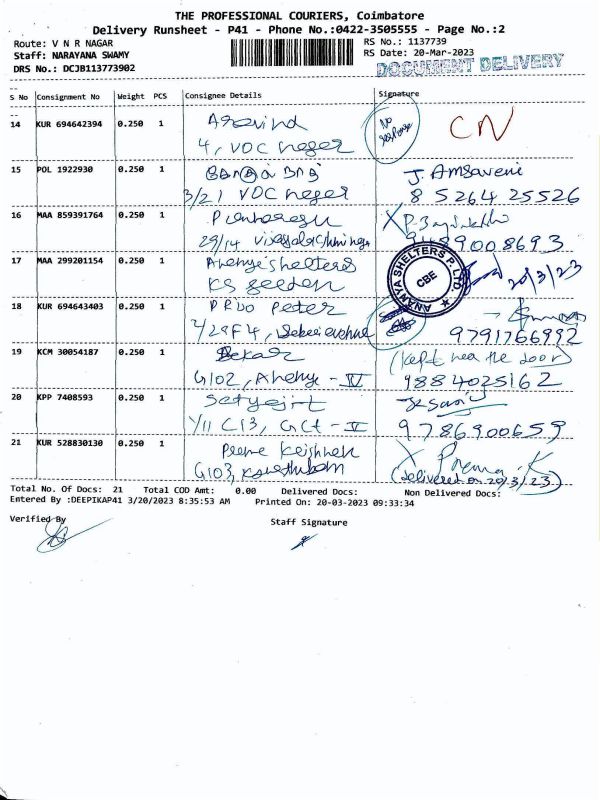 THE PROFESSIONAL COURIERS, Coimbatore
Delivery Runsheet - P41 - Phone No.:0422-3505555 - Page No.:2
Route: V N R NAGAR
RS No.: 1137739
Staff: NARAYANA SWAMY
RS Date: 20-Mar-2023
DRS No.: DCJB113773902
DOCUMENT DELIVERY
S No Consignment No Weight PCS Consignee Details Signature
14 KUR 694642394 0.250 1 Aravind No response CN
4, VOC nagar
15 POL 1922930 0.250 1 J. Amsaveni
3/21 VOC nagar 85264 25526
16 MAA 859391764 0.250 1
29/14 9489008693
17 MAA 299201154 0.250 1 20/3/23
ANANYA SHELTERS P. LTD.
CBE
18 KUR 694643403 0.250 1 Peter
9791766992
19 KCM 30054187 0.250 1 Sekar (kept near the door)
G102, - IV 9884025162
20 KPP 7408593 0.250 1
1/11 C13, GCt - V 9786900659
21 KUR 528830130 0.250 1 X Prema. K
G103, (delivered on 20/3/23)
Total No. Of Docs: 21 Total COD Amt: 0.00 Delivered Docs: Non Delivered Docs:
Entered By :DEEPIKAP41 3/20/2023 8:35:53 AM Printed On: 20-03-2023 09:33:34
Verified By
Staff Signature